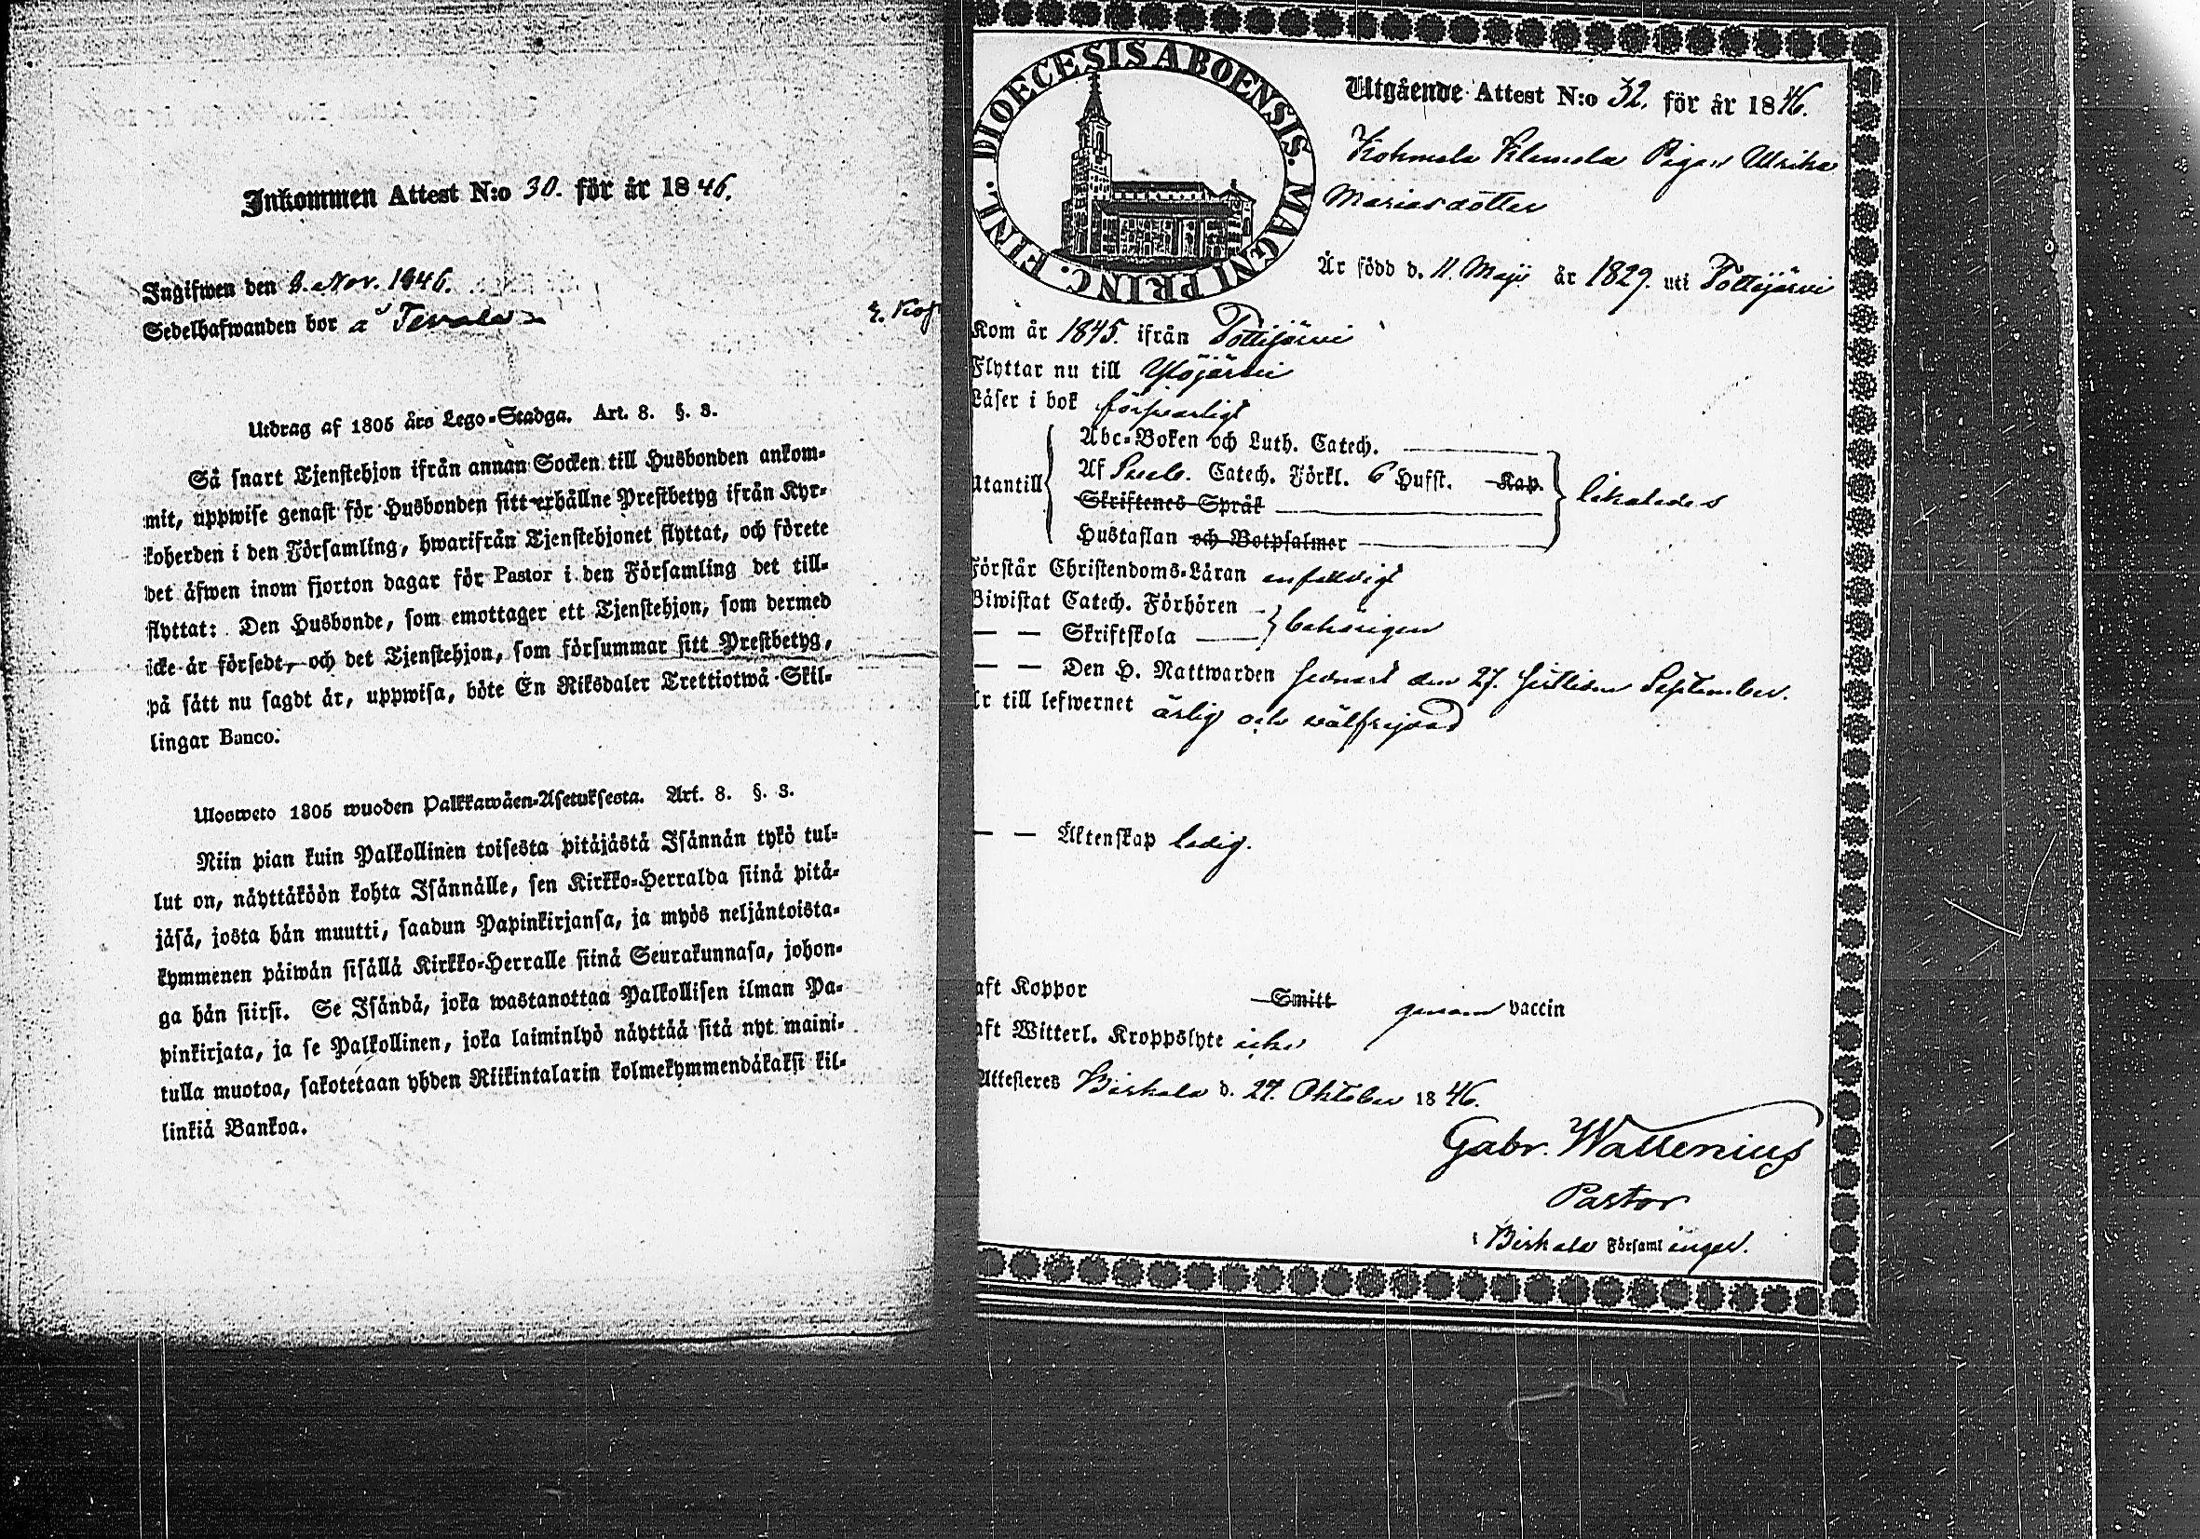 Inkommen Attest N:o 30. för år 1846.
Ingifwen den 8. Nov. 1846.
Sedelhafwanden bor å Tevala
Utdrag af 1805 års Lego-Stadga. Art. 8. §. 3.
Så snart Tjenstehjon ifrån annan Socken till Husbonden ankom-
mit, uppwise genast för Husbonden sitt erhållne Prestbetyg ifrån Kyr-
koherden i den Församling, hwarifrån Tjenstehjonet flyttat, och förete
det åfwen inom fjorton dagar för Pastor i den Församling det till-
flyttat: Den Husbonde, som emottager ett Tjenstehjon, som dermed
icke år försedt, och det Tjenstehjon, som försummar sitt Prestbetyg,
på sätt nu sagdt är, uppwisa, böte En Riksdaler Trettiotwå Skil-
lingar Banco.
Ulosweto 1805 wuoden Palkkawäen-Asetuksesta. Art. 8. §. 3.
Niin pian kuin Palkollinen toisesta pitäjästä Isännän tykö tul-
lut on, näyttäköön kohta Isännälle, sen Kirkko-Herralda siinä pitä-
jäsä, josta hän muutti, saadun Papinkirjansa, ja myös neljäntoista-
kymmenen päiwän sisällä Kirkko-Herralle siinä Seurakunnasa, johon-
ga hän siirsi. Se Isändä, joka wastanottaa Palkollisen ilman Pa-
pinkirjata, ja se Palkollinen, joka laiminlyö näyttää sitä nyt maini-
tulla muotoa, sakotetaan yhden Riikintalarin kolmekymmendäkaksi kil-
linkiä Bankoa.
DIOECESIS ABOENSIS. MAGNI PRINC. FINL.
Utgående Attest N:o 32. för år 1846.
Kohmala Klemola Pigan Ulrika
Mariasdotter
Är född d. 11. Maji år 1829. uti Tottijärvi
Kom år 1845. ifrån Tottijärvi
Flyttar nu till Ylöjärvi
Läser i bok försvarligt
Abc-Boken och Luth. Catech.
Utantill Af Sveb. Catech. Förkl. 6 Hufst. Kap. likaledes
Skriftenes Språk
Hustaflan och Botpsalmer
Förstår Christendoms-Läran enfaldigt
Biwistat Catech. Förhören
— — Skriftskola behörigen
— — Den H. Nattwarden senast den 27. sistlidne September.
Är till lefwernet ärlig och wälfrejdad
— — Äktenskap ledig.
aft Koppor Smitt genom vaccin
aft Witterl. Kroppslyte icke
Attesteres Birkala d. 27. Oktober 1846.
Gabr. Wallenius
Pastor
i Birkala Församlingar.